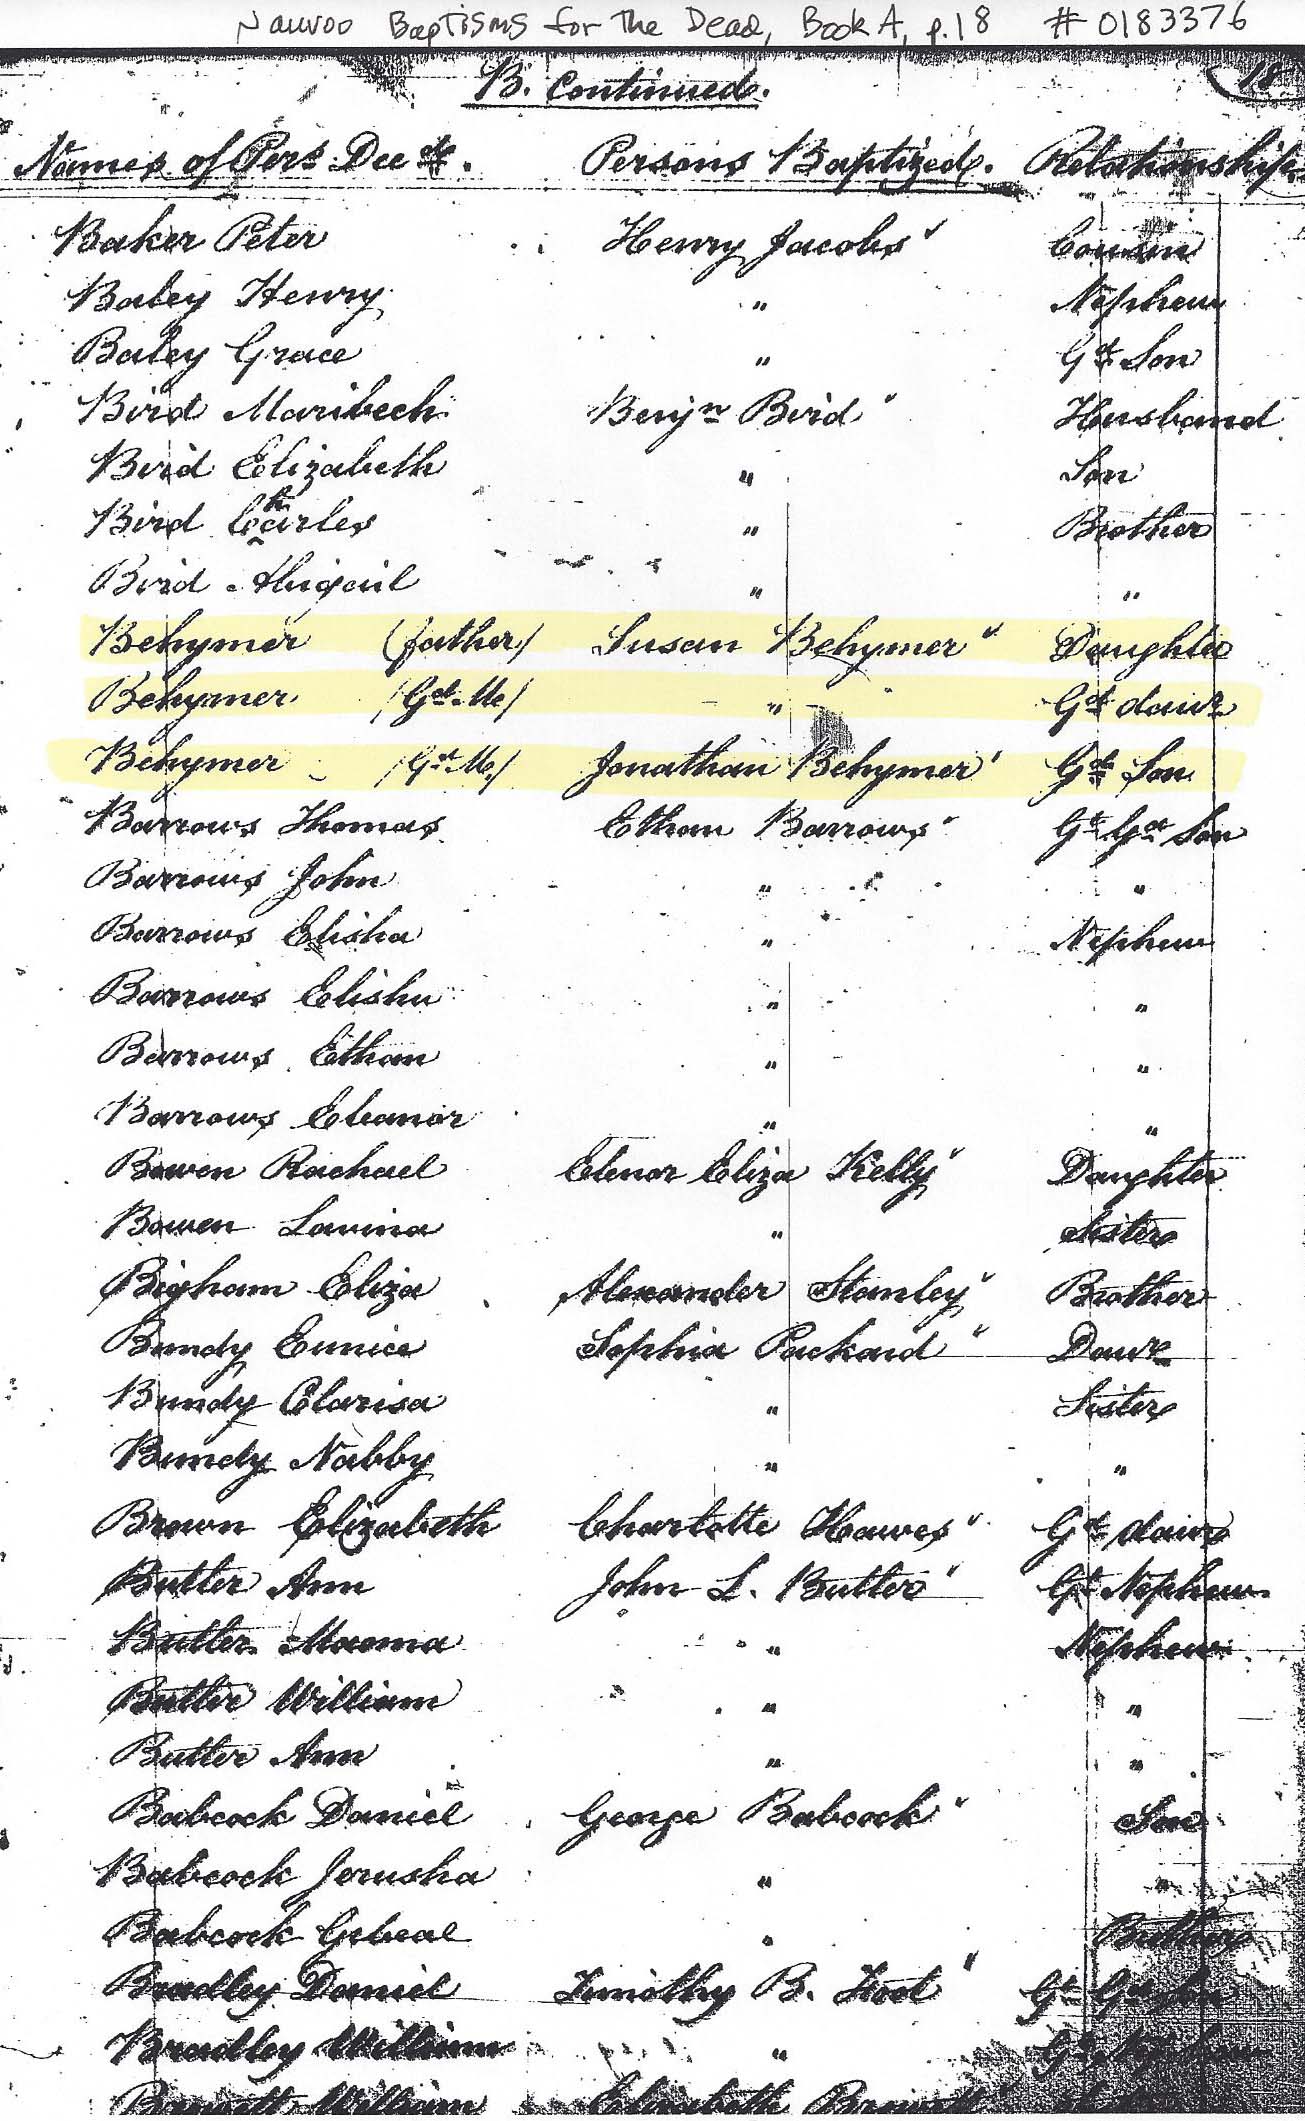 Nauvoo Baptisms for the Dead, Book A, p.18 # 0183376
B. Continued. 18
Names of Pers Dec d. Persons Baptized. Relationship
Baker Peter Henry Jacobs " Cousin
Baley Henry " Nephew
Baley Grace " Gd Son
Bird Maribech Benjn Bird " Husband
Bird Elizabeth " Son
Bird Charles " Brother
Bird Abigail " "
Behymer (father) Susan Behymer " Daughter
Behymer (Gd. M) " Gd daur
Behymer (Gd M) Jonathan Behymer ' Gd Son
Barrows Thomas Ethan Barrows " Gt Gd Son
Barrows John " "
Barrows Elisha " Nephew
Barrows Elisha " "
Barrows Ethan " "
Barrows Eleanor " "
Bowen Rachael Elenor Eliza Kelly " Daughter
Bowen Lavina " Sister
Bigham Eliza Alexander Stanley " Brother
Bundy Eunice Sophia Packard " Daur
Bundy Clarisa " Sister
Bundy Nabby " "
Brown Elizabeth Charlotte Hawes " Gd daur
Butler Ann John L. Butler " Gt Nephew
Butler " Nephew
Butler William " "
Butler Ann " "
Babcock Daniel George Babcock " Son
Babcock Jerusha " "
Babcock " Brother
Bradley Daniel Timothy B. Foot " Gt Gd Son
Bradley William " Gt Nephew
William Elizabeth